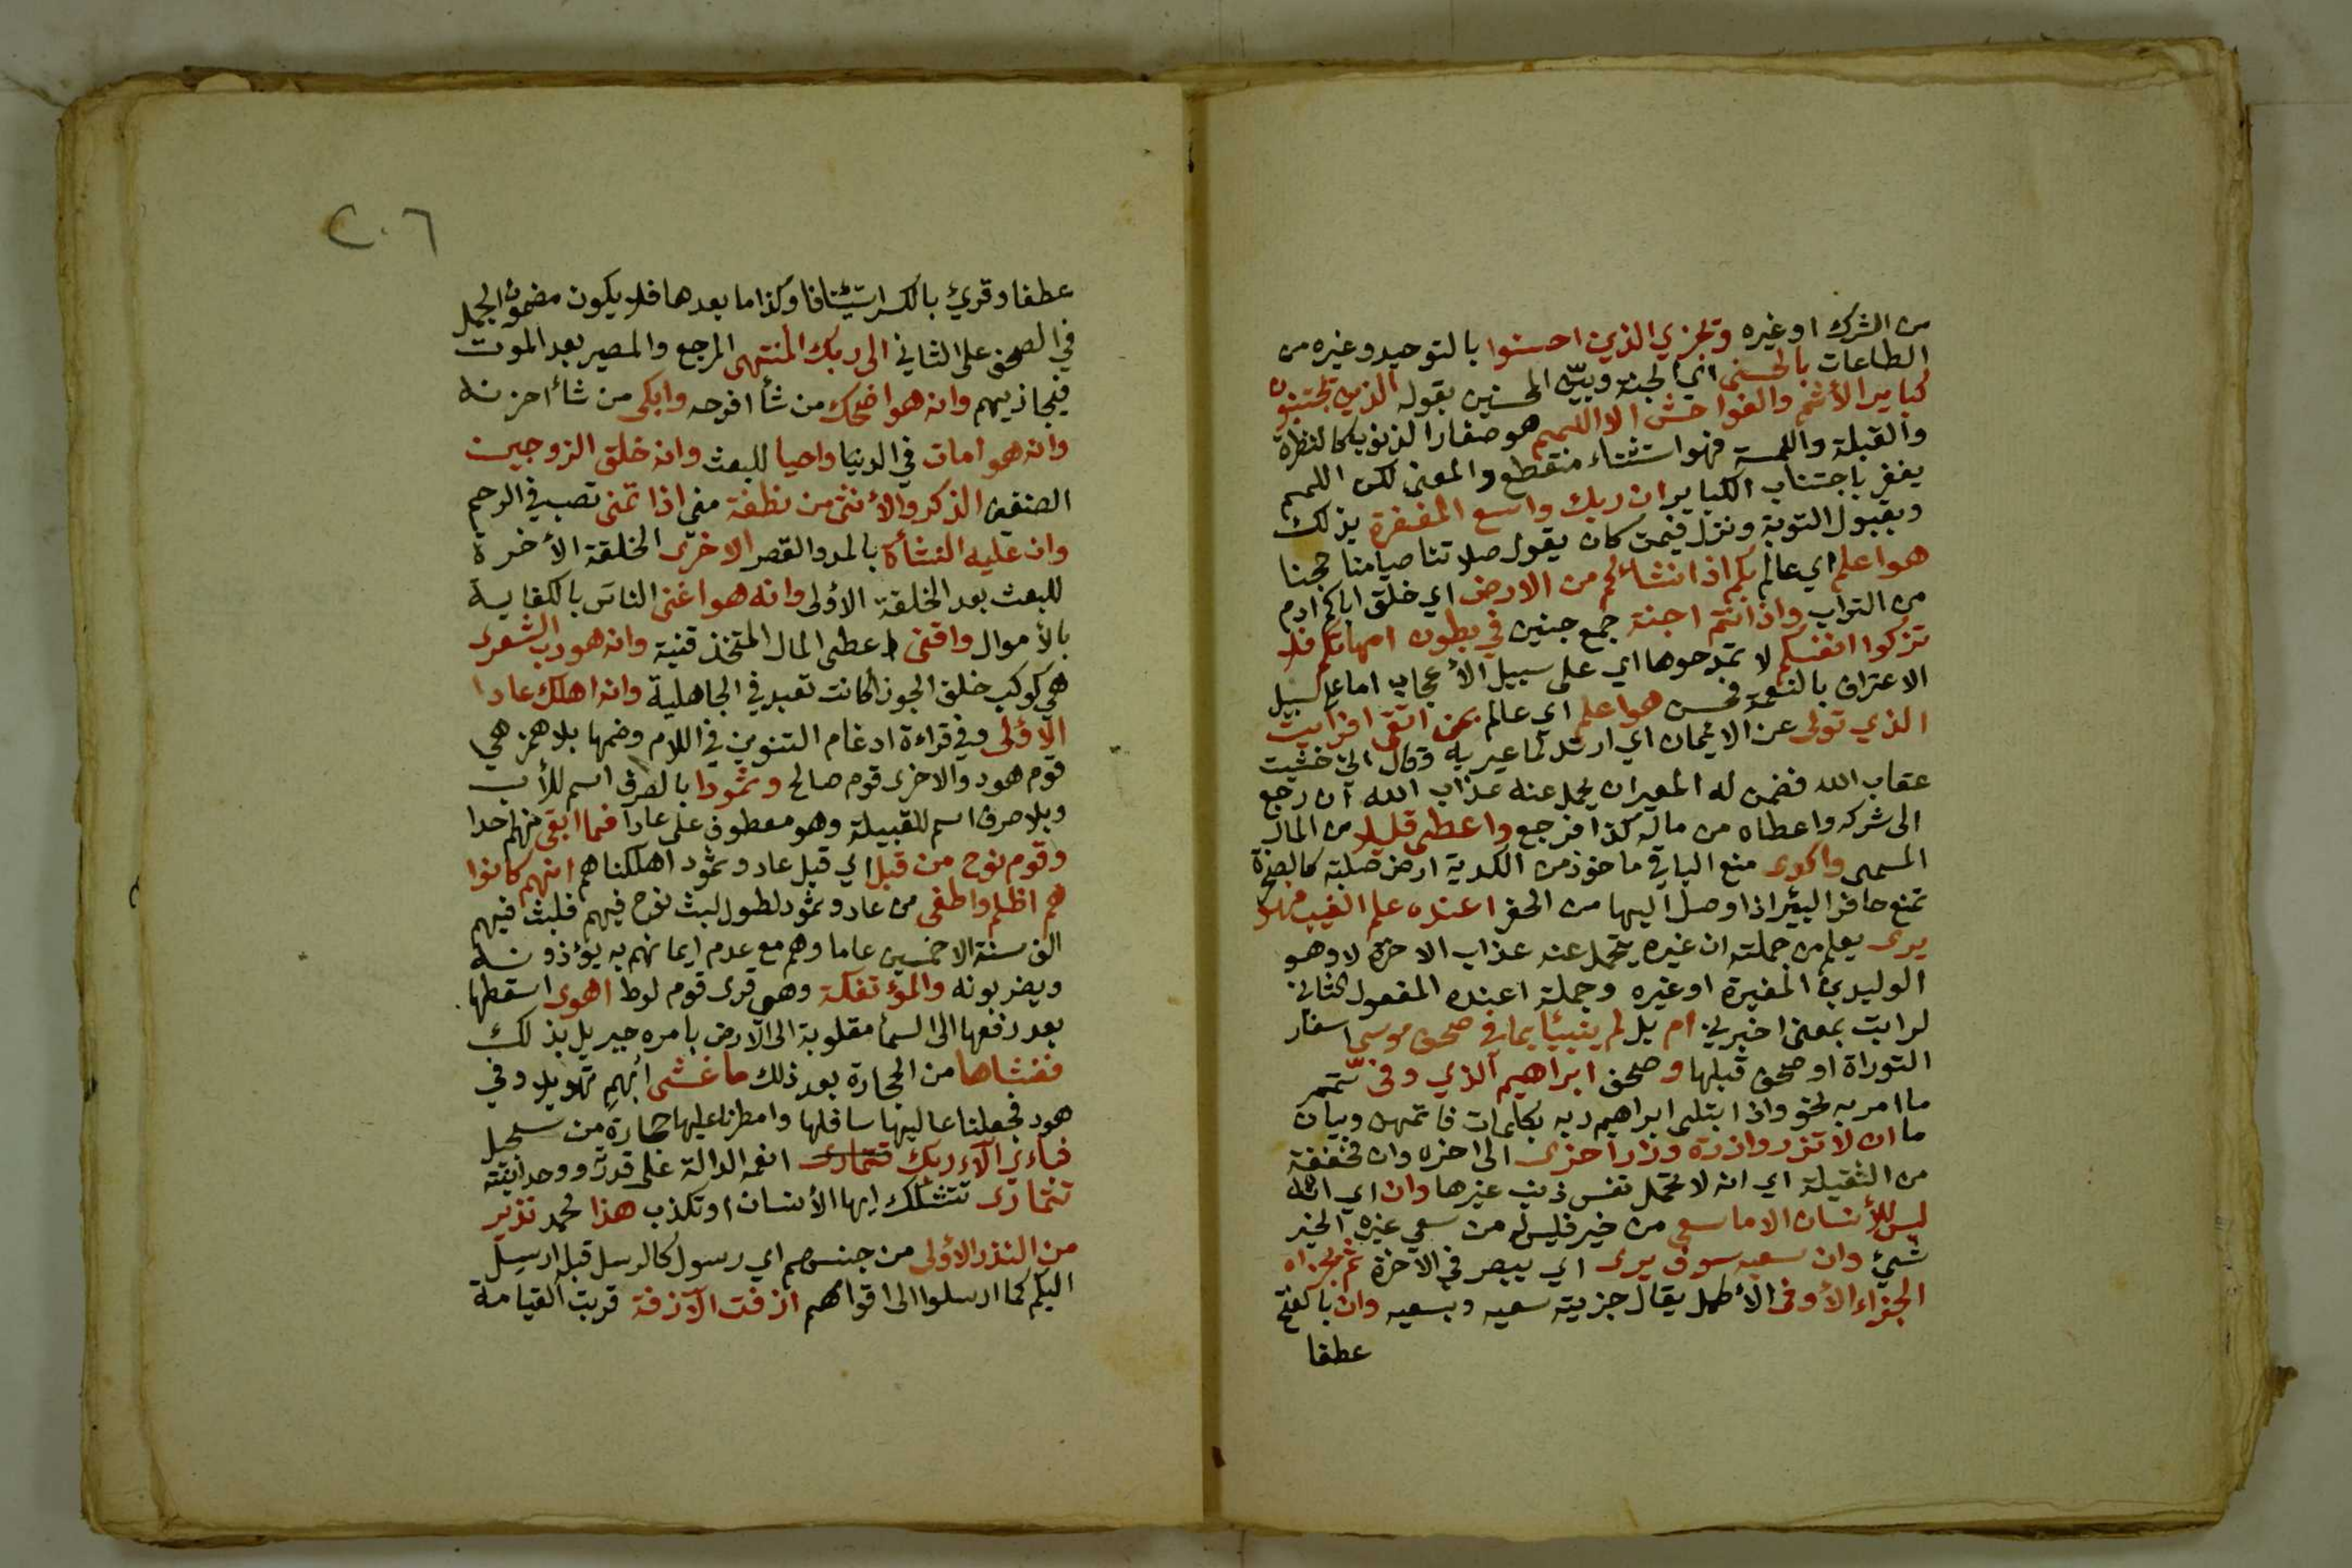 من الشرك او غيره وتجزي الذين احسنوا بالتوحيد وغيره من
الطاعات بالحسنى اي الجنة وبين المحسنين بقوله الذين تجتنبون
كبائر الأثم والفواحش الا اللمم هو صغار الذنوب كالنظرة
والقبلة واللمسة فهو استثناء منقطع والمعنى لكن اللمم
يغفر باجتناب الكباير ان ربك واسع المغفرة بذلك
وبقبول التوبة ونزل فيمن كان يقول صلاتنا صيامنا حجنا
هو اعلم اي عالم بكم اذ انشائكم من الارض اي خلق اباكم ادم
من التراب واذ انتم اجنة جمع جنين في بطون امهاتكم فلا
تزكوا انفسكم لا تمدحوها اي على سبيل الأعجاب اما على سبيل
الاعتراف بالنعمة فحسن هو اعلم اي عالم بمن اتقى افرايت
الذي تولى عن الايمان اي ارتد لما عير به وقال اني خشيت
عقاب الله فضمن له المعير ان يحمل عنه عذاب الله ان رجع
الى شركه واعطاه من ماله كذا فرجع واعطى قليلا من المال
المسمى واكدى منع الباقي ماخوذ من الكدية ارض صلبة كالصخرة
تمنع حافر البئر اذا وصل اليها من الحفر اعنده علم الغيب فهو
يرى يعلم من جملته ان غيره يتحمل عنه عذاب الاخرة لا وهو
الوليد بن المغيرة او غيره وجملة اعنده المفعول الثاني
لرايت بمعنى اخبرني ام بل لم ينبئا بما في صحف موسى اسفار
التوراة او صحف قبلها وصحف ابراهيم الذي وفى تمم
ما امر به نحو واذ ابتلى ابراهيم ربه بكلمات فاتمهن وبيان
ما ان لا تزر وازرة وزر اخرى الى اخره وان مخففة
من الثقيلة اي انه لا تحمل نفس ذنب غيرها وان اي انه
ليس للأنسان الا ما سعى من خير فليس له من سعي غيره الخير
شيئ وان سعيه سوف يرى اي يبصر في الاخرة ثم يجزاه
الجزاء الأوفى الأكمل يقال جزيته سعيه وبسعيه وان بالفتح
عطفا
٢٠٦
عطفا وقرئ بالكسر استئنافا وكذا ما بعدها فلا يكون مضمون الجمل
في الصحف على الثاني الى ربك المنتهى المرجع والمصير بعد الموت
فيجازيهم وانه هو اضحك من شأ افرحه وابكى من شاء احزنه
وانه هو امات في الدنيا واحيا للبعث وانه خلق الزوجين
الصنفين الذكر والأنثى من نطفة مني اذا تمنى تصب في الرحم
وان عليه النشأة بالمد والقصر الاخرى الخلقة الأخرة
للبعث بعد الخلقة الاولى وانه هو اغنى الناس بالكفاية
بالأموال واقنى اعطى المال المتخذ قنية وانه هو رب الشعرى
هي كوكب خلف الجوزا كانت تعبد في الجاهلية وانه اهلك عادا
الأولى وفي قراءة ادغام التنوين في اللام وضمها بلا همز هي
قوم هود والاخرى قوم صالح وثمودا بالصرف اسم للأب
وبلا صرف اسم للقبيلة وهو معطوف على عادا فما ابقى منهم احدا
وقوم نوح من قبل اي قبل عاد وثمود اهلكناهم انهم كانوا
هم اظلم واطغى من عاد وثمود لطول لبث نوح فيهم فلبث فيهم
الف سنة الا خمسين عاما وهم مع عدم ايمانهم به يؤذونه
ويضربونه والمؤتفكة وهي قرى قوم لوط اهوى اسقطها
بعد رفعها الى السما مقلوبة الى الارض بامره جبريل بذلك
فغشاها من الحجارة بعد ذلك ما غشى ابهم تهويلا وفي
هود فجعلنا عاليها سافلها وامطرنا عليها حجارة من سجيل
فباءي الآء ربك تتمارى انعمه الدالة على قدرته ووحدانيته
تتمارى تتشكك ايها الأنسان او تكذب هذا محمد نذير
من النذر الأولى من جنسهم اي رسول كالرسل قبله ارسل
اليكم كما ارسلوا الى اقوامهم ازفت الآزفة قربت القيامة